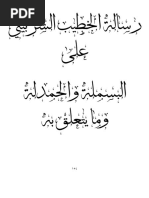 رسالة الخطيب الشربيني
على
البسملة والحمدلة
وما يتعلق به